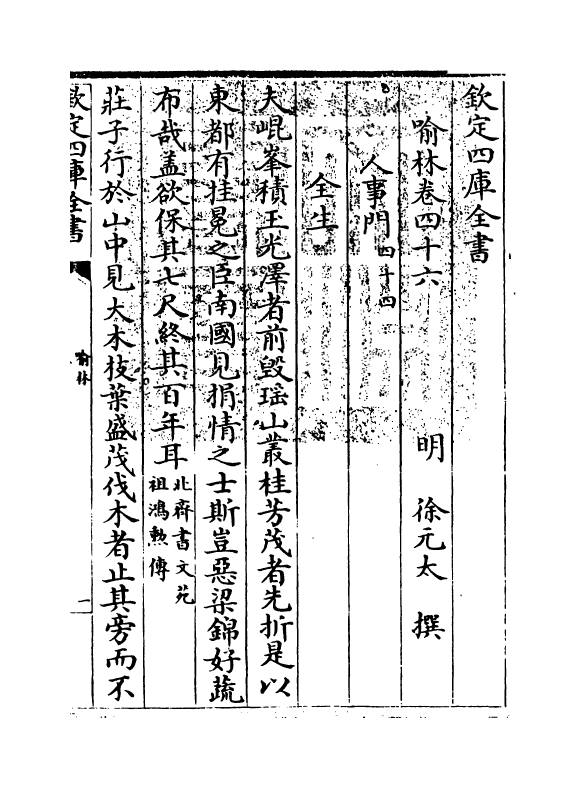 欽定四庫全書
喻林卷四十六 明 徐元太 撰
人事門四十四
全生
夫崐峯積玉光澤者前毁瑶山叢桂芳茂者先折是以
東都有挂冕之臣南國見捐情之士斯豈惡梁錦好蔬
布哉盖欲保其七尺終其百年耳北齊書文苑祖鴻勲傳
莊子行於山中見大木枝葉盛茂伐木者止其旁而不
欽定四庫全書
喻林
一